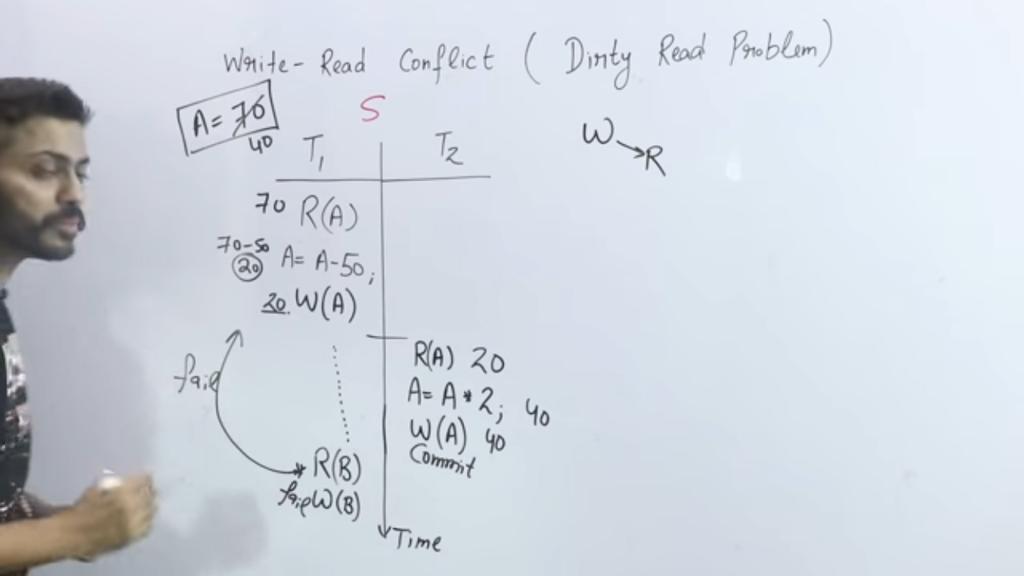 Write-Read Conflict (Dirty Read Problem)
A = 70
40
S
T1 T2
W → R
70 R(A)
70-50
20 A = A-50;
20 W(A)
R(A) 20
fail
A = A * 2; 40
W(A) 40
Commit
* R(B)
fail W(B)
Time